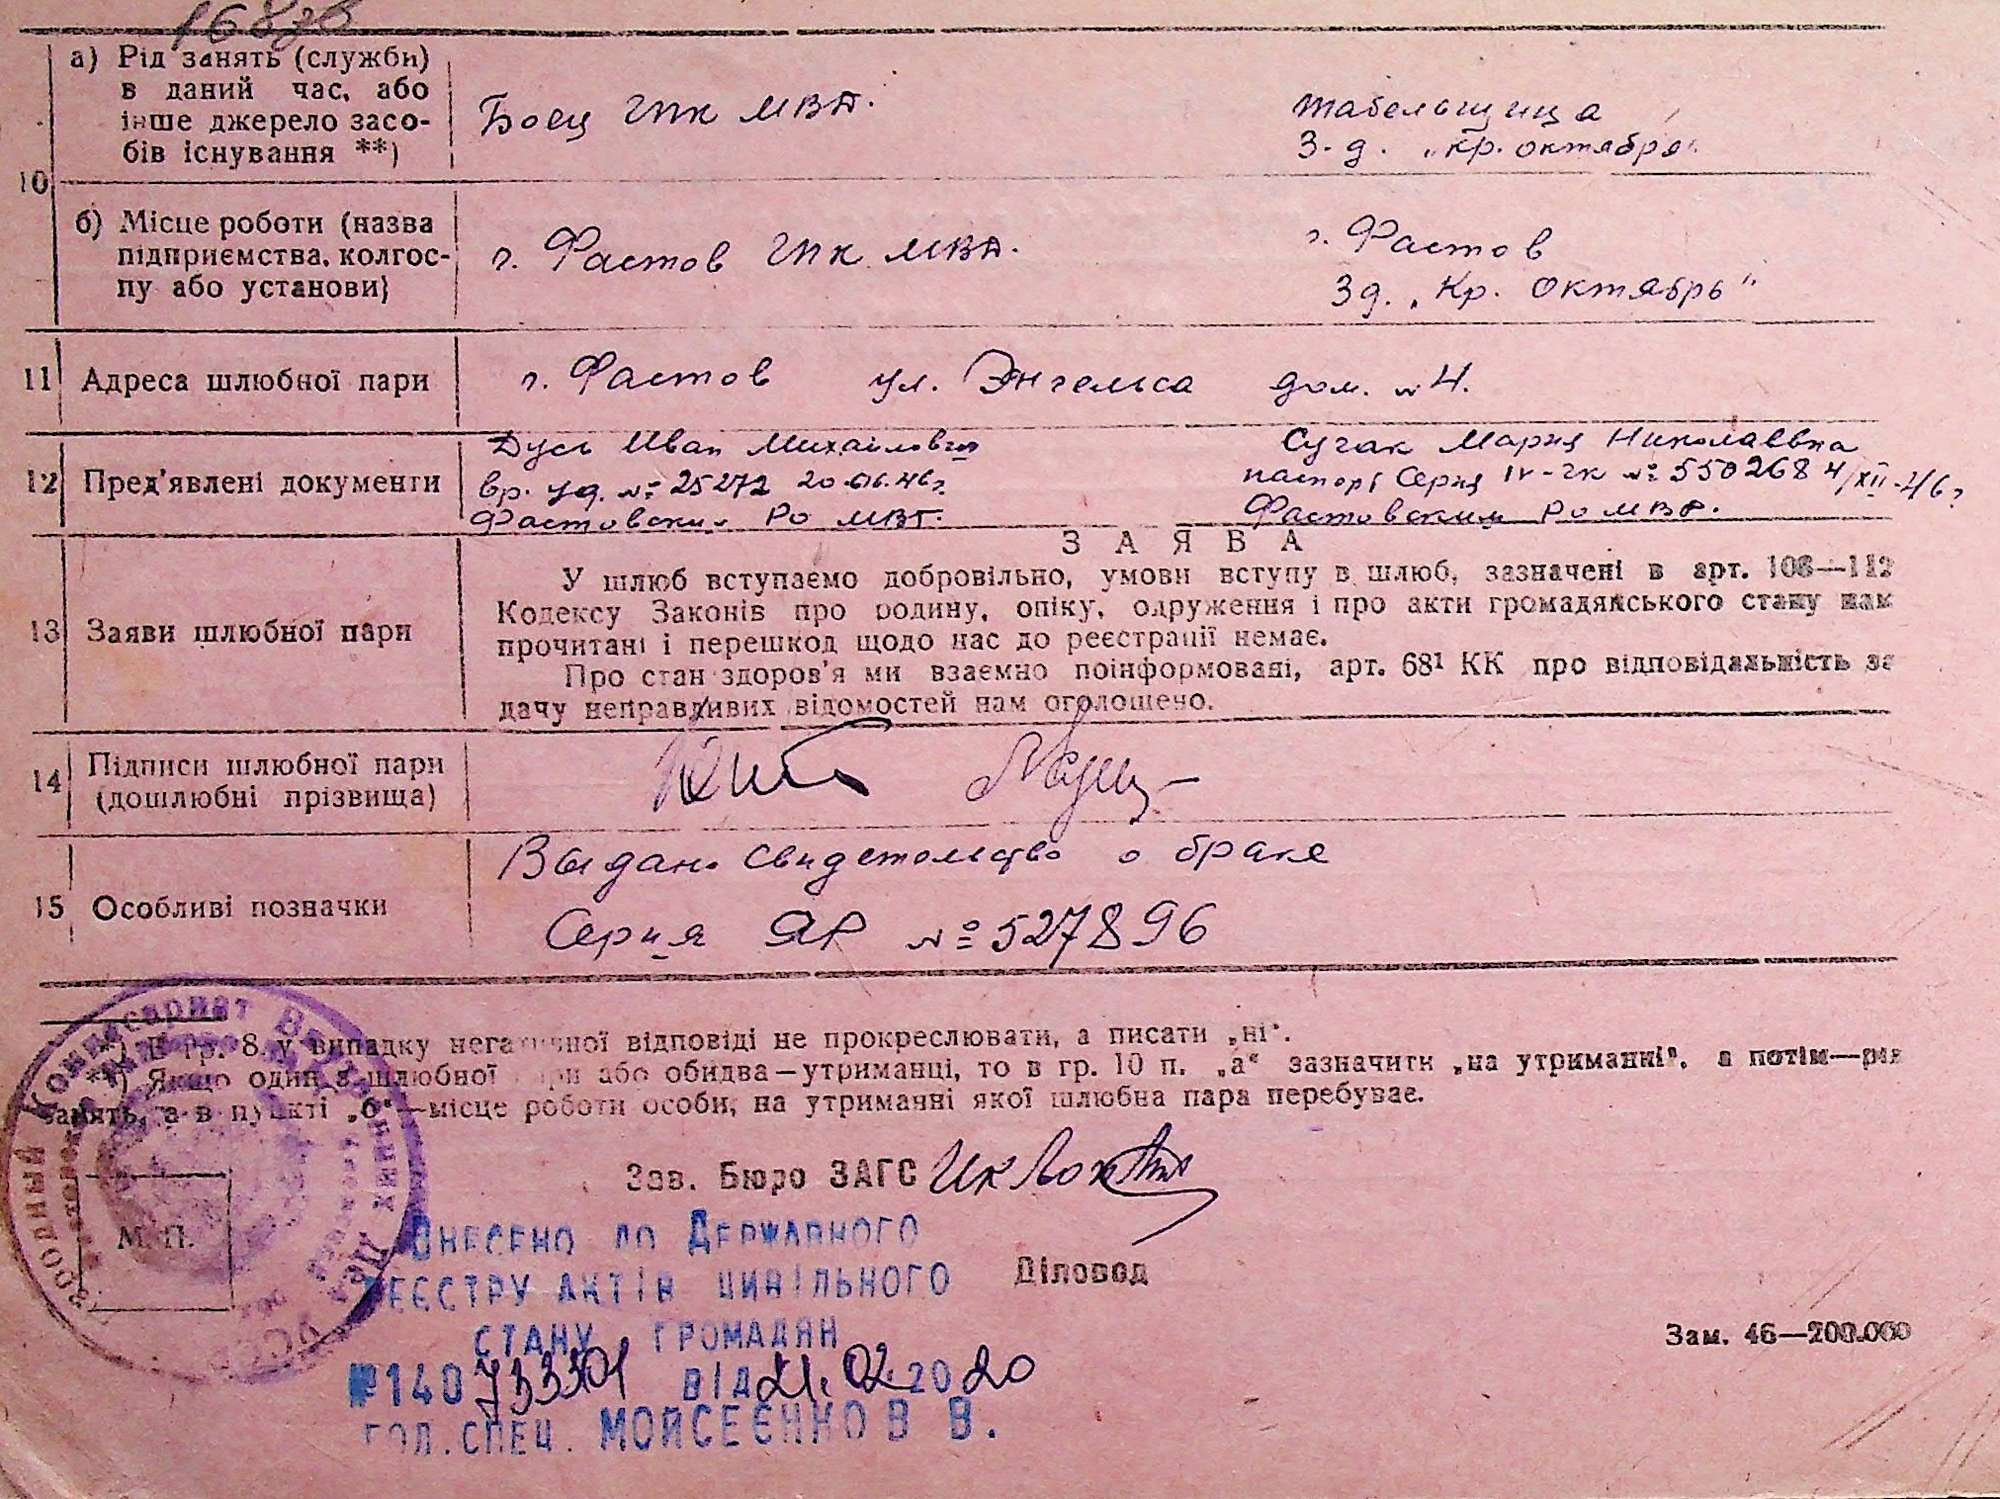 16878
а) Рід занять (служби)
в даний час, або
інше джерело засо-
бів існування **)
Боец ГПК МВД.
Табельщица
З-д. „Кр. октября"
10
б) Місце роботи (назва
підприємства, колгос-
пу або установи)
г. Фастов ГПК МВД.
г. Фастов
Зд. „Кр. Октябрь"
11 Адреса шлюбної пари
г. Фастов ул. Энгельса дом. №4.
12 Пред'явлені документи
Дусь Иван Михайлович
вр. уд. № 25272 20.06.46г.
Фастовским РО МВД.
Сучак Мария Николаевна
паспорт Серия IV-ЧК № 550268 4/XII-46г
Фастовским РО МВД.
ЗАЯВА
13 Заяви шлюбної пари
У шлюб вступаємо добровільно, умови вступу в шлюб, зазначені в арт. 108—112
Кодексу Законів про родину, опіку, одруження і про акти громадянського стану нам
прочитані і перешкод щодо нас до реєстрації немає.
Про стан здоров'я ми взаємно поінформовані, арт. 68¹ КК про відповідальність за
дачу неправдивих відомостей нам оголошено.
14 Підписи шлюбної пари
(дошлюбні прізвища)
15 Особливі позначки
Выдано свидетельство о браке
Серия ЯР № 527896
*) В гр. 8 у випадку негативної відповіді не прокреслювати, а писати „ні".
**) Якщо один з шлюбної пари або обидва—утриманці, то в гр. 10 п. „а" зазначити „на утриманні", а потім—рід
занять, а в пункті „б"—місце роботи особи, на утриманні якої шлюбна пара перебуває.
Зав. Бюро ЗАГС
М. П.
Діловод
Зам. 46—200.000
ВНЕСЕНО ДО ДЕРЖАВНОГО
РЕЄСТРУ АКТІВ ЦИВІЛЬНОГО
СТАНУ ГРОМАДЯН
№140733301 ВІД 21.02.2020
ГОЛ.СПЕЦ. МОЙСЕЄНКО В В.